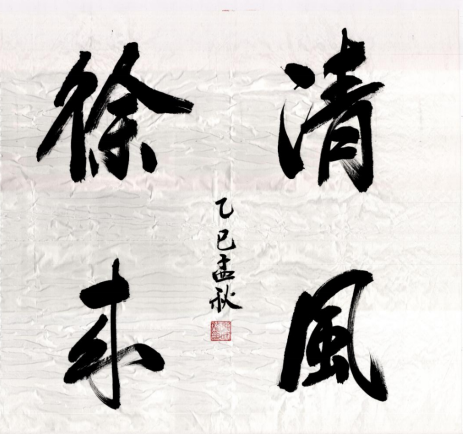 清風
徐来
乙巳孟秋